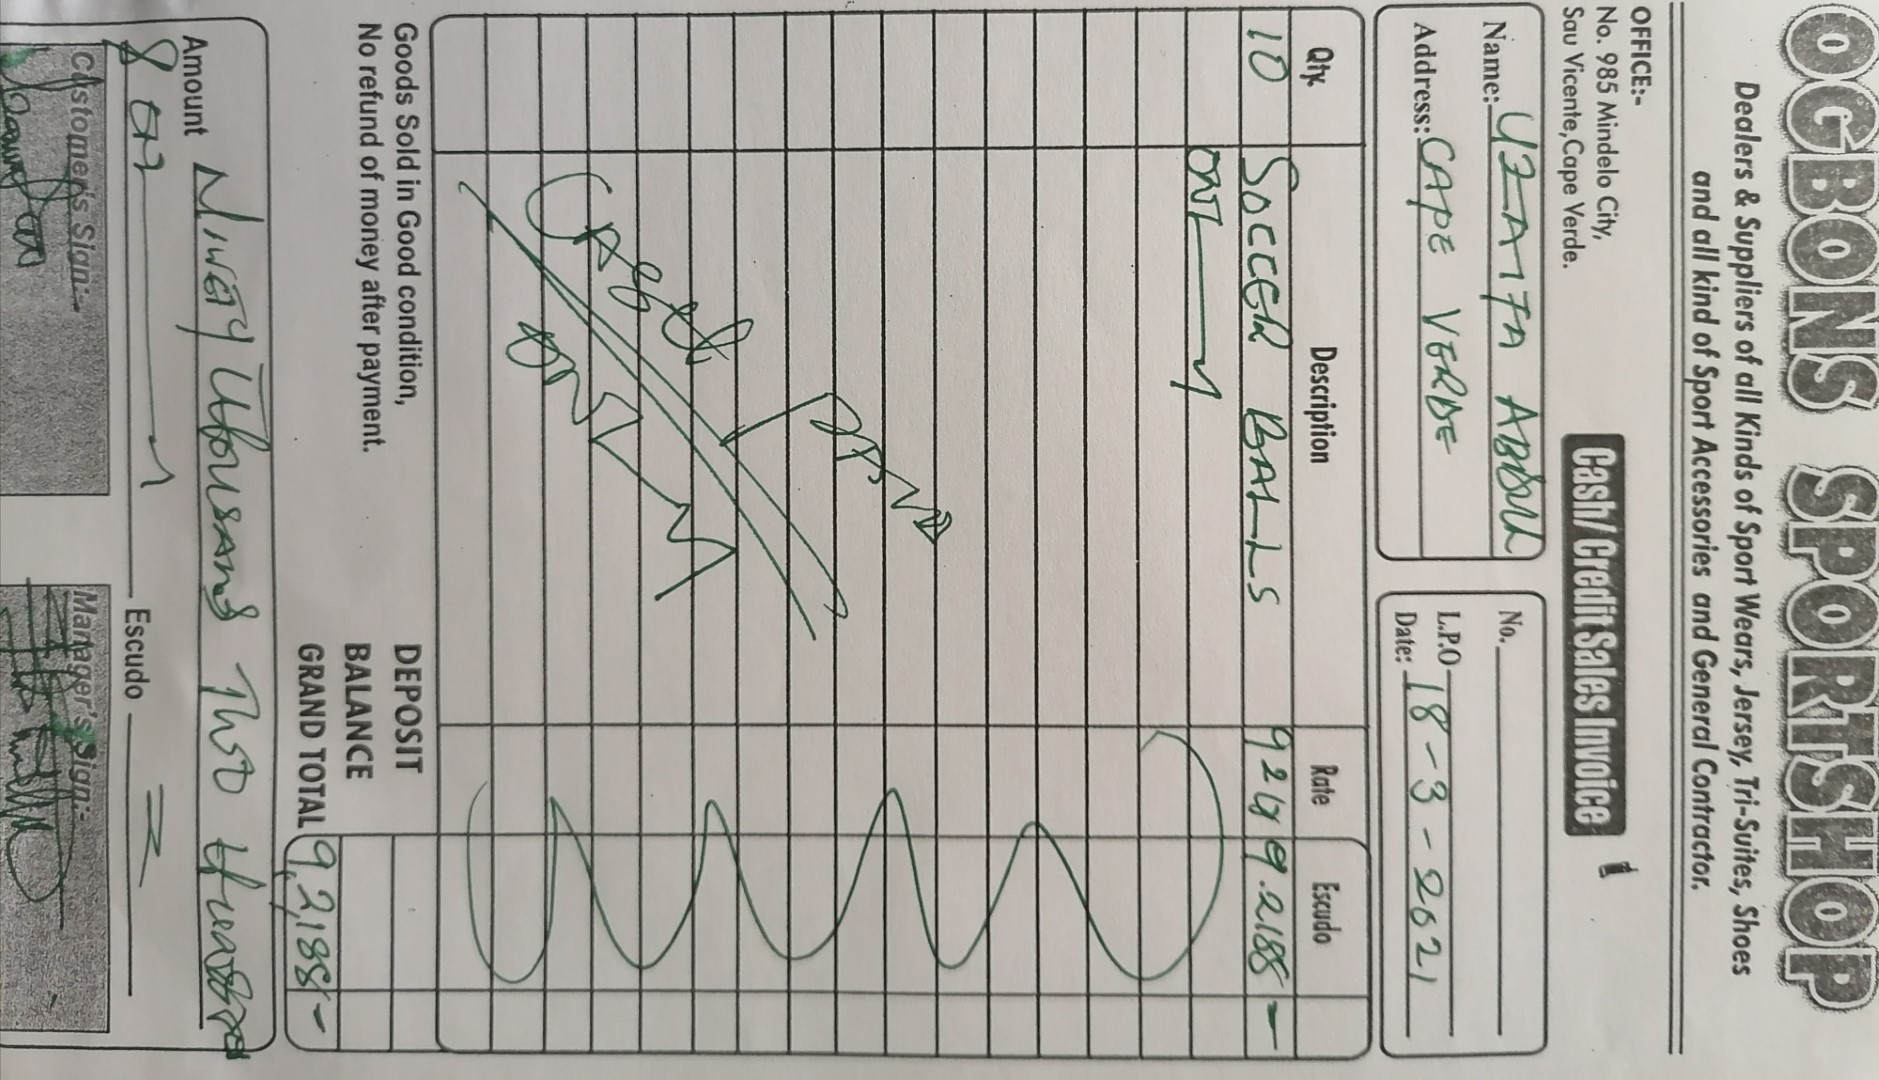 OGBONS SPORTSHOP
Dealers & Suppliers of all Kinds of Sport Wears, Jersey, Tri-Suites, Shoes
and all kind of Sport Accessories and General Contractor.
OFFICE:-
No. 985 Mindelo City,
Sau Vicente, Cape Verde.
Cash/ Credit Sales Invoice
Name:- UZAIFA ABDUL
Address: CAPE VERDE
No.
L.P.O
Date: 18-3-2021
Qty. Description Rate Escudo
10 SOCCER BALLS
ONLY
Goods Sold in Good condition,
No refund of money after payment.
DEPOSIT
BALANCE
GRAND TOTAL 9,2188-
Amount Ninety Thousand Two
Escudo
Costomer's Sign:-
Manager's Sign:-